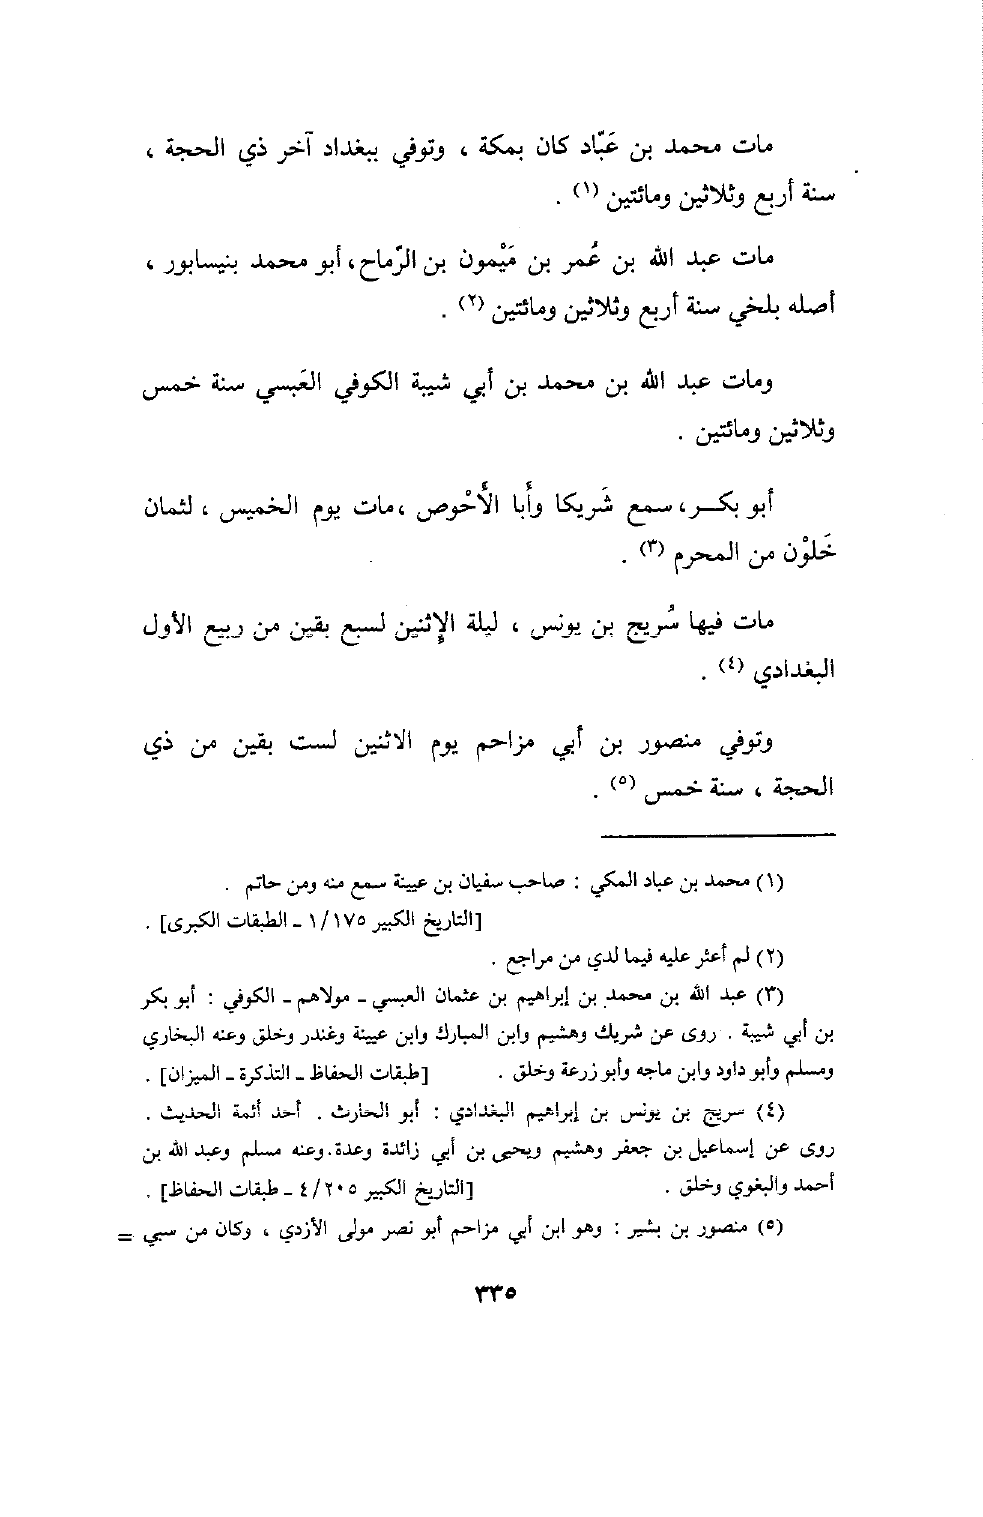 مات محمد بن عَبّاد كان بمكة ، وتوفي ببغداد آخر ذي الحجة ،
سنة أربع وثلاثين ومائتين (١) .
مات عبد الله بن عُمر بن مَيْمون بن الرّماح، أبو محمد بنيسابور ،
أصله بلخي سنة أربع وثلاثين ومائتين (٢) .
ومات عبد الله بن محمد بن أبي شيبة الكوفي العَبسي سنة خمس
وثلاثين ومائتين .
أبو بكـــر، سمع شَريكا وأَبا الأَحْوص ،مات يوم الخميس ، لثمان
خَلوْن من المحرم (٣) .
مات فيها سُريج بن يونس ، ليلة الإثنين لسبع بقين من ربيع الأول
البغدادي (٤) .
وتوفي منصور بن أبي مزاحم يوم الاثنين لست بقين من ذي
الحجة ، سنة خمس (٥) .
(١) محمد بن عباد المكي : صاحب سفيان بن عيينة سمع منه ومن حاتم .
[التاريخ الكبير ١/١٧٥ ـ الطبقات الكبرى] .
(٢) لم أعثر عليه فيما لدي من مراجع .
(٣) عبد الله بن محمد بن إبراهيم بن عثمان العبسي ـ مولاهم ـ الكوفي : أبو بكر
بن أبي شيبة . روى عن شريك وهشيم وابن المبارك وابن عيينة وغندر وخلق وعنه البخاري
ومسلم وأبو داود وابن ماجه وأبو زرعة وخلق . [طبقات الحفاظ ـ التذكرة ـ الميزان] .
(٤) سريج بن يونس بن إبراهيم البغدادي : أبو الحارث . أحد أئمة الحديث .
روى عن إسماعيل بن جعفر وهشيم ويحيى بن أبي زائدة وعدة.وعنه مسلم وعبد الله بن
أحمد والبغوي وخلق . [التاريخ الكبير ٤/٢٠٥ ـ طبقات الحفاظ] .
(٥) منصور بن بشير : وهو ابن أبي مزاحم أبو نصر مولى الأزدي ، وكان من سبي =
٣٣٥